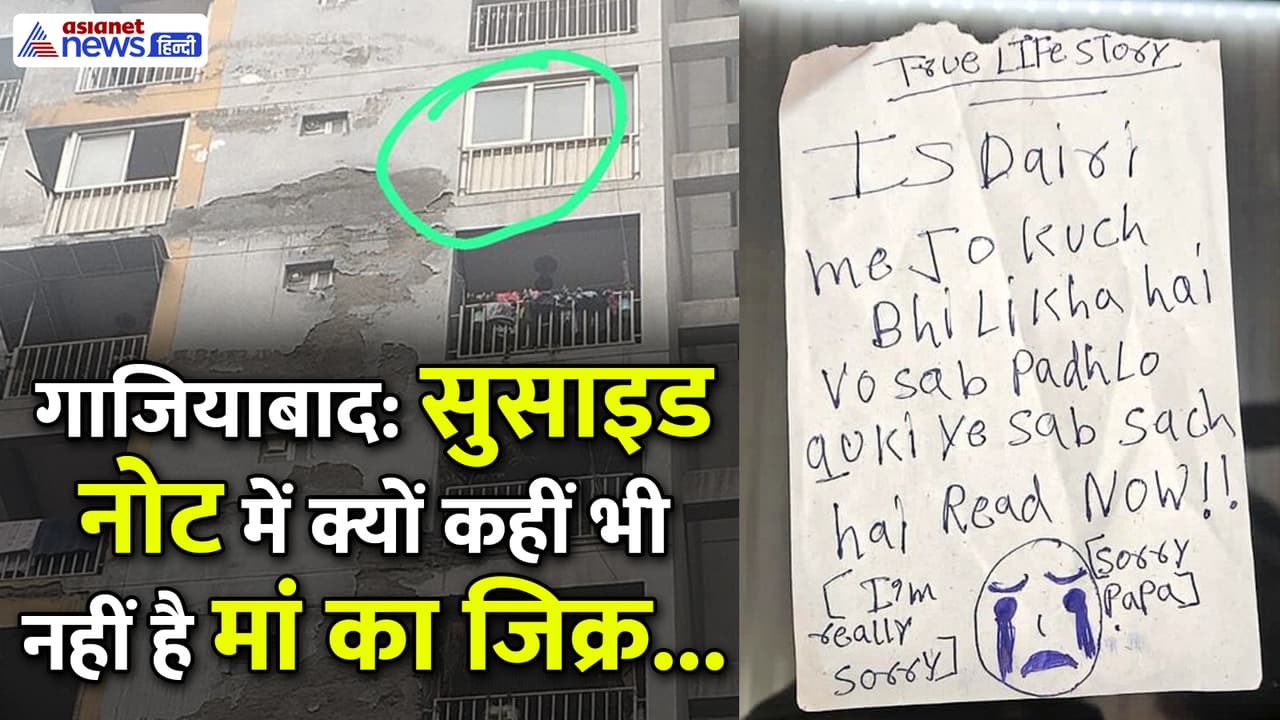 asianet
news हिन्दी
गाजियाबाद: सुसाइड
नोट में क्यों कहीं भी
नहीं है मां का जिक्र...
True LIFe STory
IS Dairi
me Jo kuch
Bhi Likha hai
Vo sab Padh Lo
quki ye sab sach
hai Read NOW!!
[I'm
really
sorry]
[sorry
PaPa]